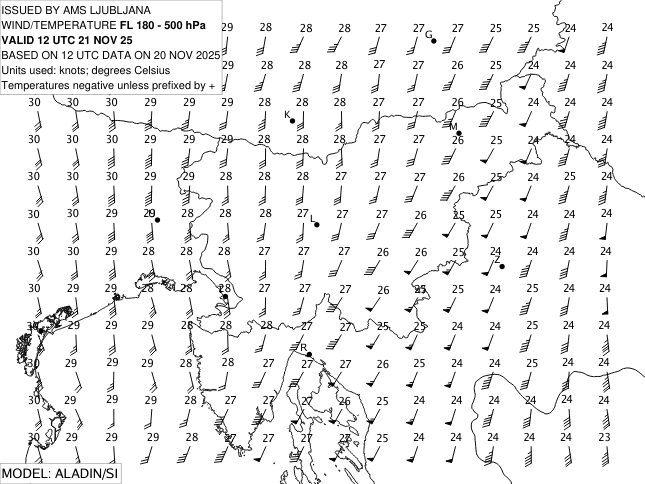 ISSUED BY AMS LJUBLJANA
WIND/TEMPERATURE FL 180 - 500 hPa
VALID 12 UTC 21 NOV 25
BASED ON 12 UTC DATA ON 20 NOV 2025
Units used: knots; degrees Celsius
Temperatures negative unless prefixed by +
29 28 28 28 27 27 G 27 25 25 24 24
29 28 28 28 27 27 26 25 24 24 24
30 30 30 29 29 29 28 28 28 27 27 26 25 24 24 24
K
M
30 30 30 29 29 29 28 28 28 27 27 26 25 24 24 24
30 30 29 29 29 28 28 28 27 27 27 26 25 24 24 24
30 30 29 29 28 28 28 27 L 27 27 26 25 25 24 24 24
30 30 29 29 28 28 27 27 27 26 26 25 24 24 24 24
Z
30 29 29 28 28 28 27 27 27 26 25 24 24 24 24 24
29 29 29 28 28 28 27 27 25 25 24 24 24 24 24
R
30 29 29 29 28 28 27 27 27 26 25 24 24 25 24 24
30 29 29 29 28 27 27 27 26 25 24 24 24 24 24 24
30 29 29 29 28 27 27 27 27 25 24 24 24 24 24 23
MODEL: ALADIN/SI